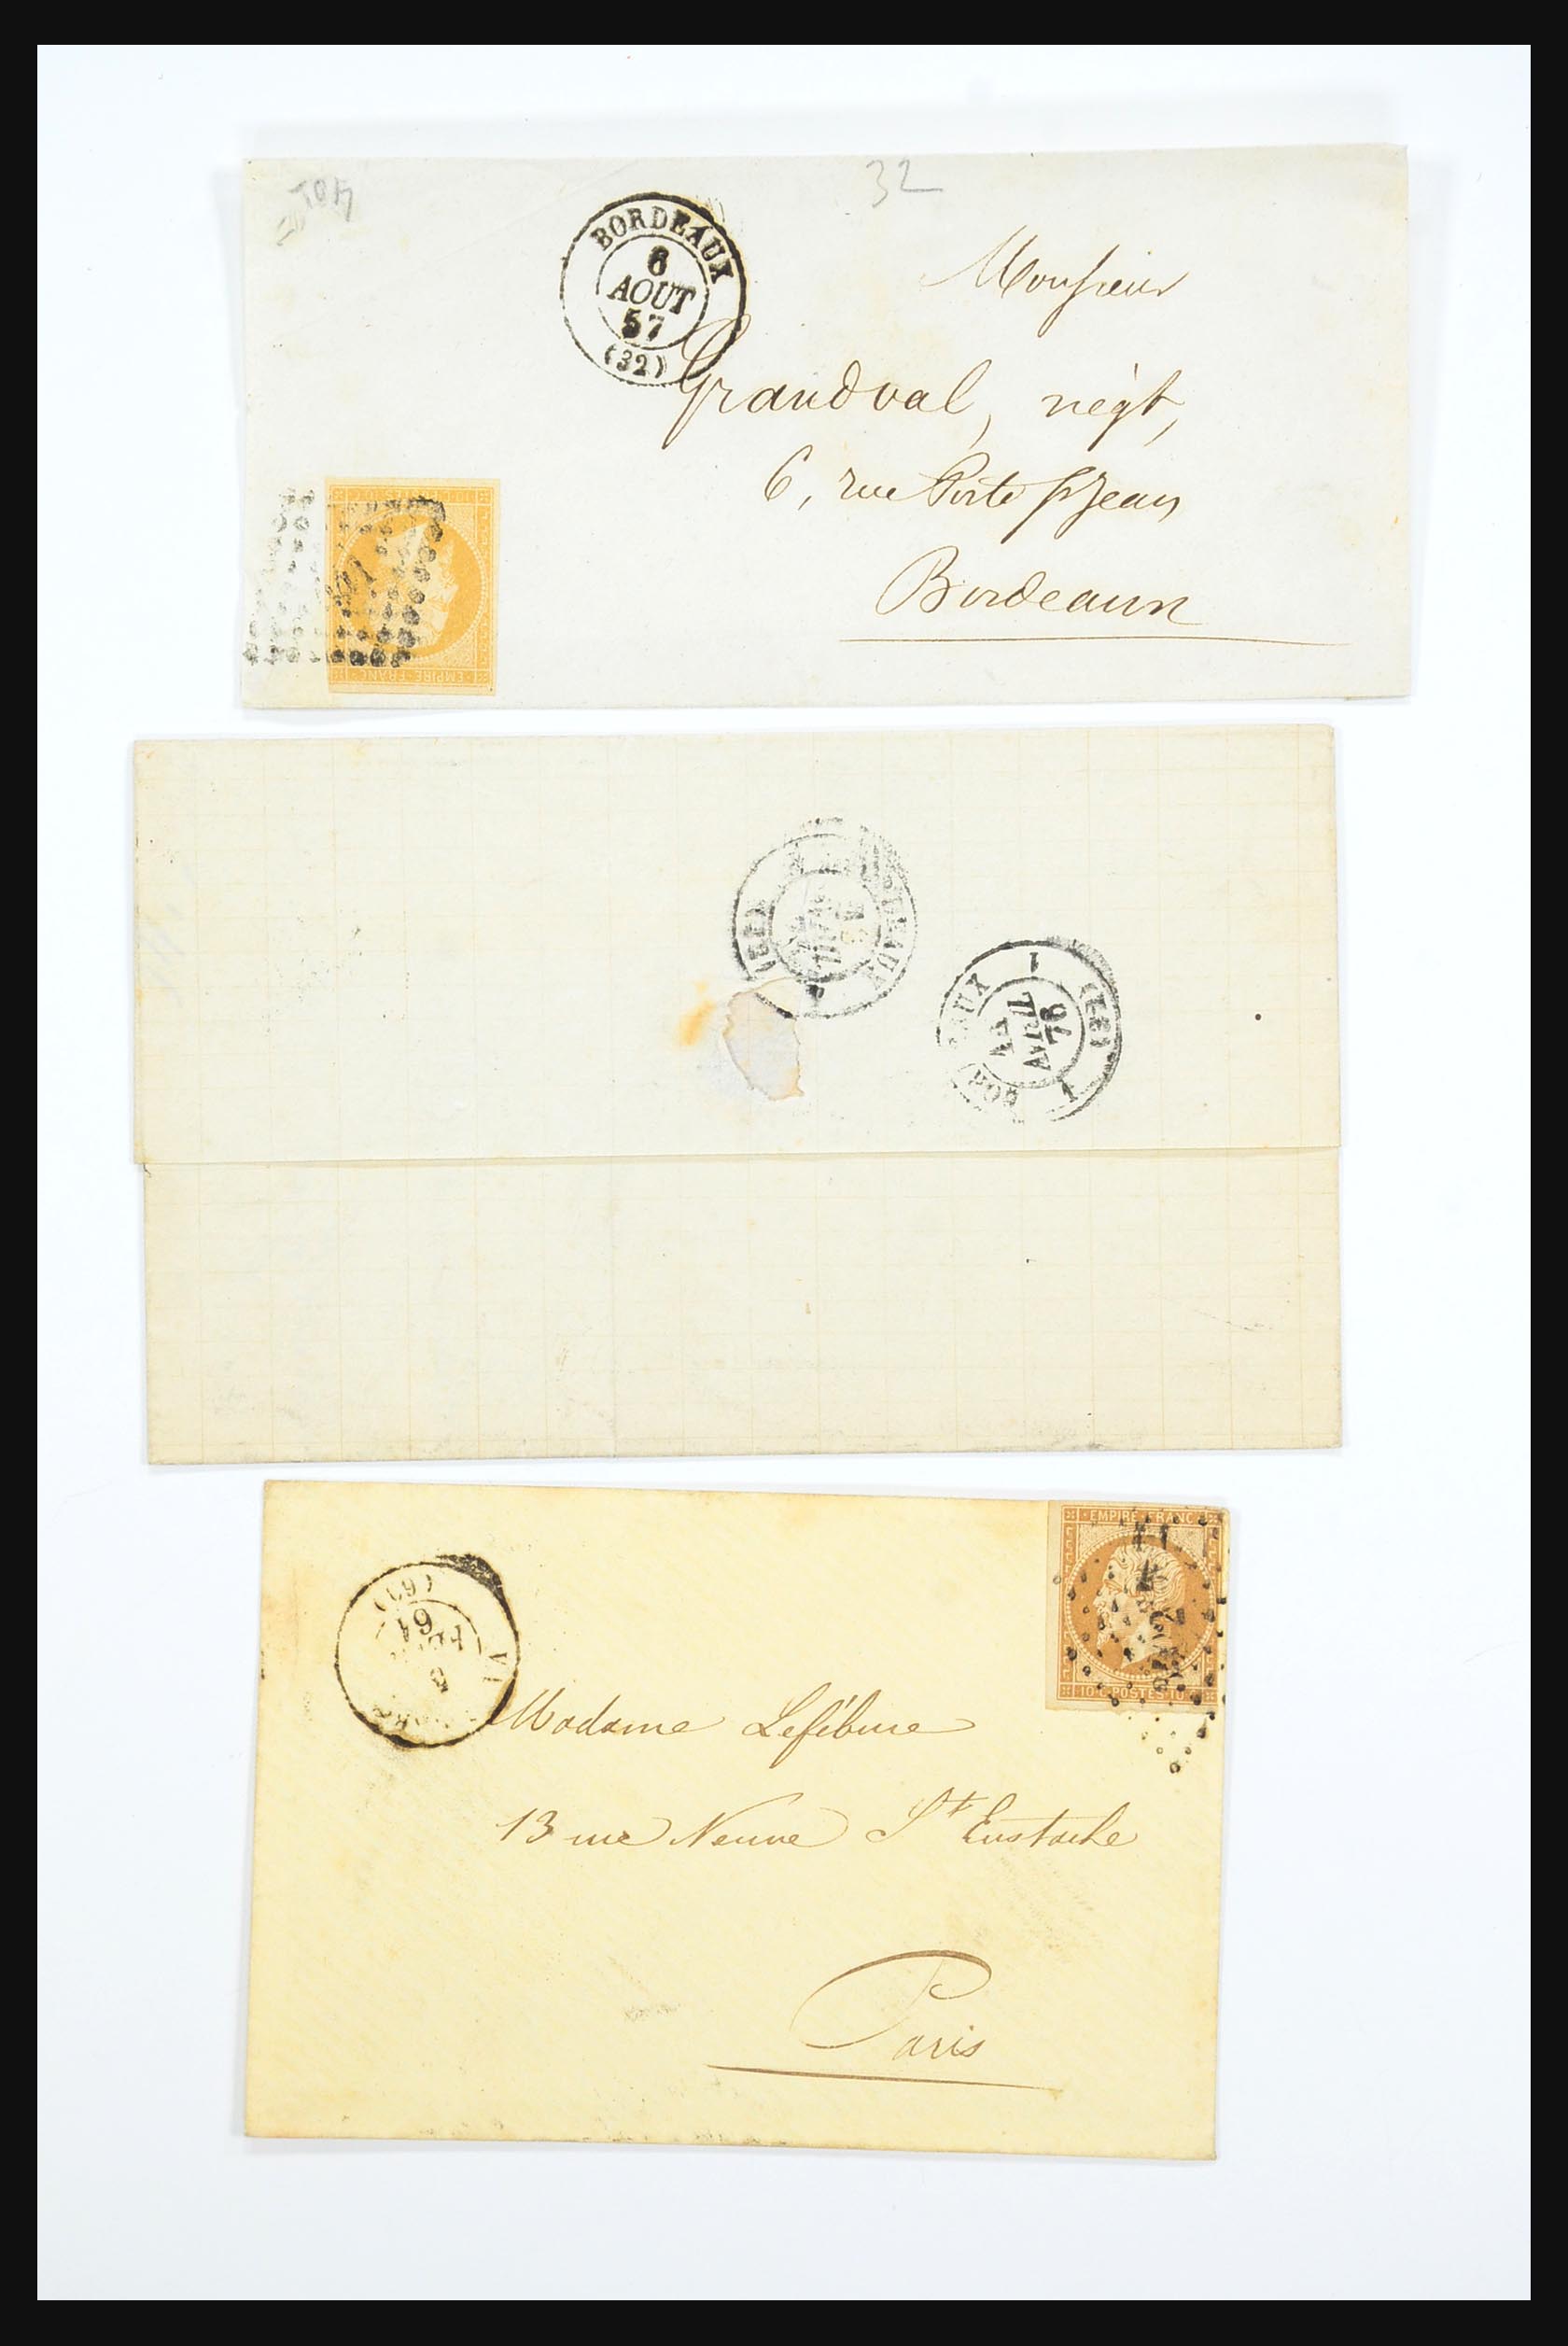 32
BORDEAUX
6
AOUT
57
(32)
Monsieur
Grandval, négt,
6, rue Porte St Jean
Bordeaux
EMPIRE · FRANC ·
1
AVRIL
76
EMPIRE · FRANC
10 C · POSTES · 10 C
(61)
61
Madame Lefébure
13 rue Neuve St Eustache
Paris